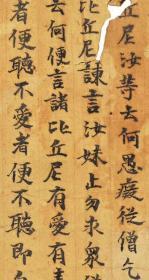 丘尼汝等去何愚癡從僧乞
比丘尼諫言汝妹止勿求衆僧
去何便言諸比丘尼有愛有恚
者便聽不愛者便不聽即白